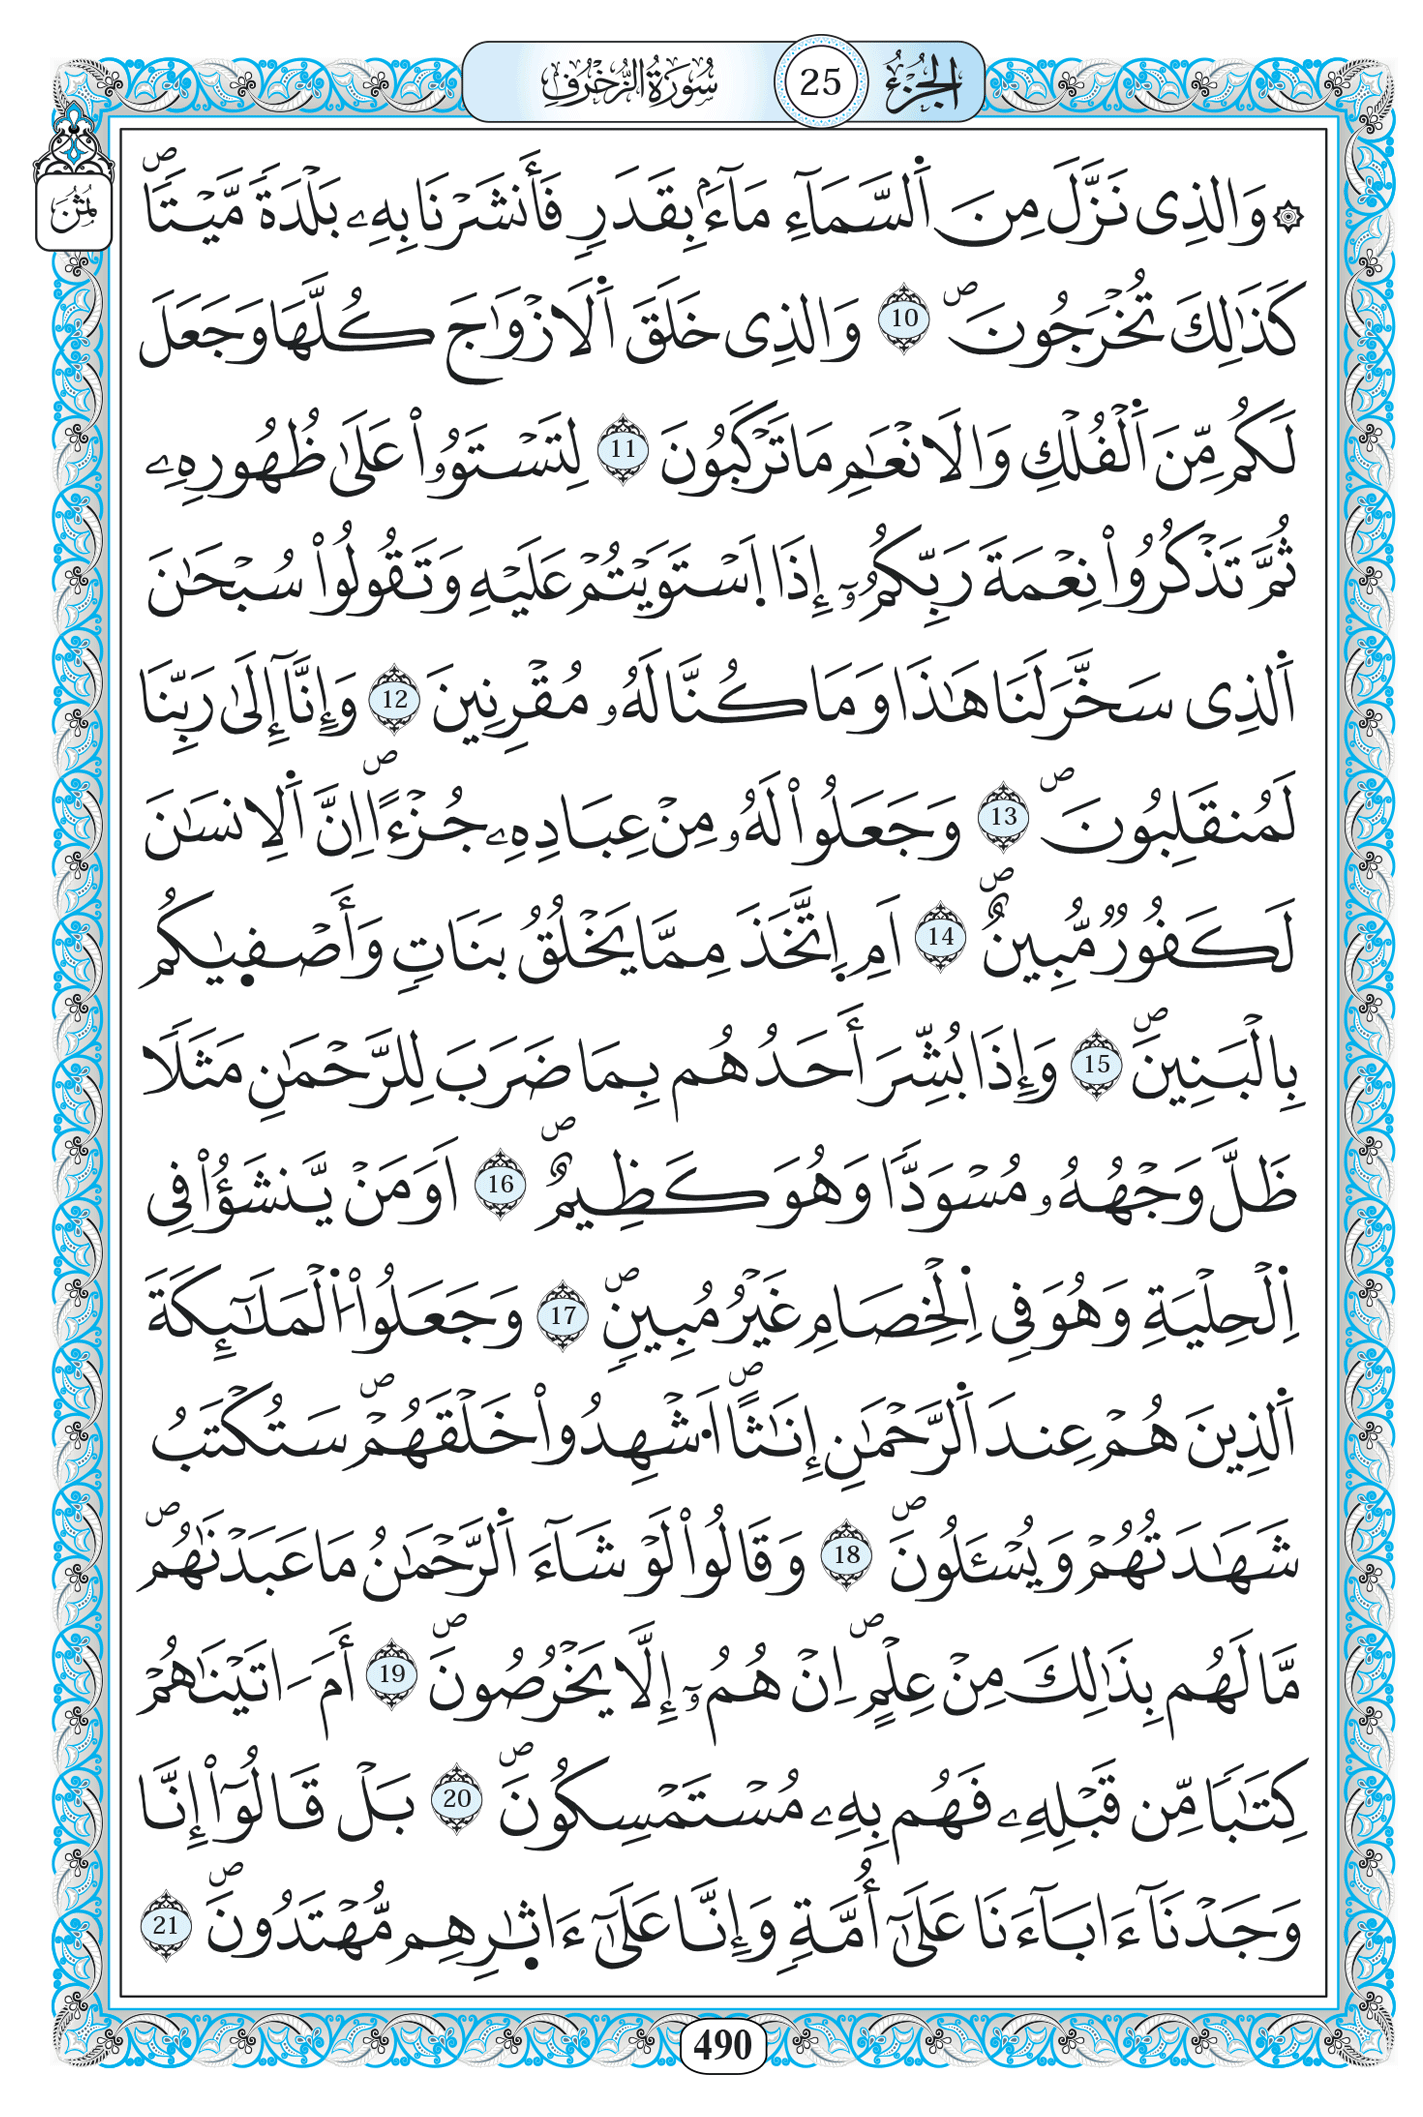 الجزء 25 سورة الزخرف
ثمن
۞ وَالذِى نَزَّلَ مِنَ اَ۬لسَّمَآءِ مَآءَۢ بِقَدَرٖ فَأَنشَرْنَا بِهِۦ بَلْدَةٗ مَّيْتاٗۖ
كَذَٰلِكَ تُخْرَجُونَۖ 10 وَالذِى خَلَقَ اَ۬لَازْوَٰجَ كُلَّهَا وَجَعَلَ
لَكُم مِّنَ اَ۬لْفُلْكِ وَالَانْعَٰمِ مَا تَرْكَبُونَ 11 لِتَسْتَوُۥاْ عَلَىٰ ظُهُورِهِۦ
ثُمَّ تَذْكُرُواْ نِعْمَةَ رَبِّكُمُۥٓ إِذَا اَ۪سْتَوَيْتُمْ عَلَيْهِ وَتَقُولُواْ سُبْحَٰنَ
اَ۬لذِى سَخَّرَ لَنَا هَٰذَا وَمَا كُنَّا لَهُۥ مُقْرِنِينَ 12 وَإِنَّآ إِلَىٰ رَبِّنَا
لَمُنقَلِبُونَۖ 13 وَجَعَلُواْ لَهُۥ مِنْ عِبَادِهِۦ جُزْءاًۖ اِنَّ اَ۬لِانسَٰنَ
لَكَفُورٞ مُّبِينٌۖ 14 اَمِ اِ۪تَّخَذَ مِمَّا يَخْلُقُ بَنَاتٖ وَأَصْفۭيٰكُم
بِالْبَنِينَۖ 15 وَإِذَا بُشِّرَ أَحَدُهُم بِمَا ضَرَبَ لِلرَّحْمَٰنِ مَثَلاٗ
ظَلَّ وَجْهُهُۥ مُسْوَدّاٗ وَهُوَ كَظِيمٌۖ 16 اَوَمَنْ يَّنشَؤُاْ فِى
اِ۬لْحِلْيَةِ وَهُوَ فِى اِ۬لْخِصَامِ غَيْرُ مُبِينٖۖ 17 وَجَعَلُواْ اُ۬لْمَلَٰٓئِكَةَ
اَ۬لذِينَ هُمْ عِندَ اَ۬لرَّحْمَٰنِ إِنَٰثاًۖ اَ۟شْهِدُواْ خَلْقَهُمْۖ سَتُكْتَبُ
شَهَٰدَتُهُمْ وَيُسْـَٔلُونَۖ 18 وَقَالُواْ لَوْ شَآءَ اَ۬لرَّحْمَٰنُ مَا عَبَدْنَٰهُمۖ
مَّا لَهُم بِذَٰلِكَ مِنْ عِلْمٍۖ اِنْ هُمُۥٓ إِلَّا يَخْرُصُونَۖ 19 أَمَ اٰتَيْنَٰهُمْ
كِتَٰباٗ مِّن قَبْلِهِۦ فَهُم بِهِۦ مُسْتَمْسِكُونَۖ 20 بَلْ قَالُوٓاْ إِنَّا
وَجَدْنَآ ءَابَآءَنَا عَلَىٰٓ أُمَّةٖ وَإِنَّا عَلَىٰٓ ءَاثٰ۪رِهِم مُّهْتَدُونَۖ 21
490